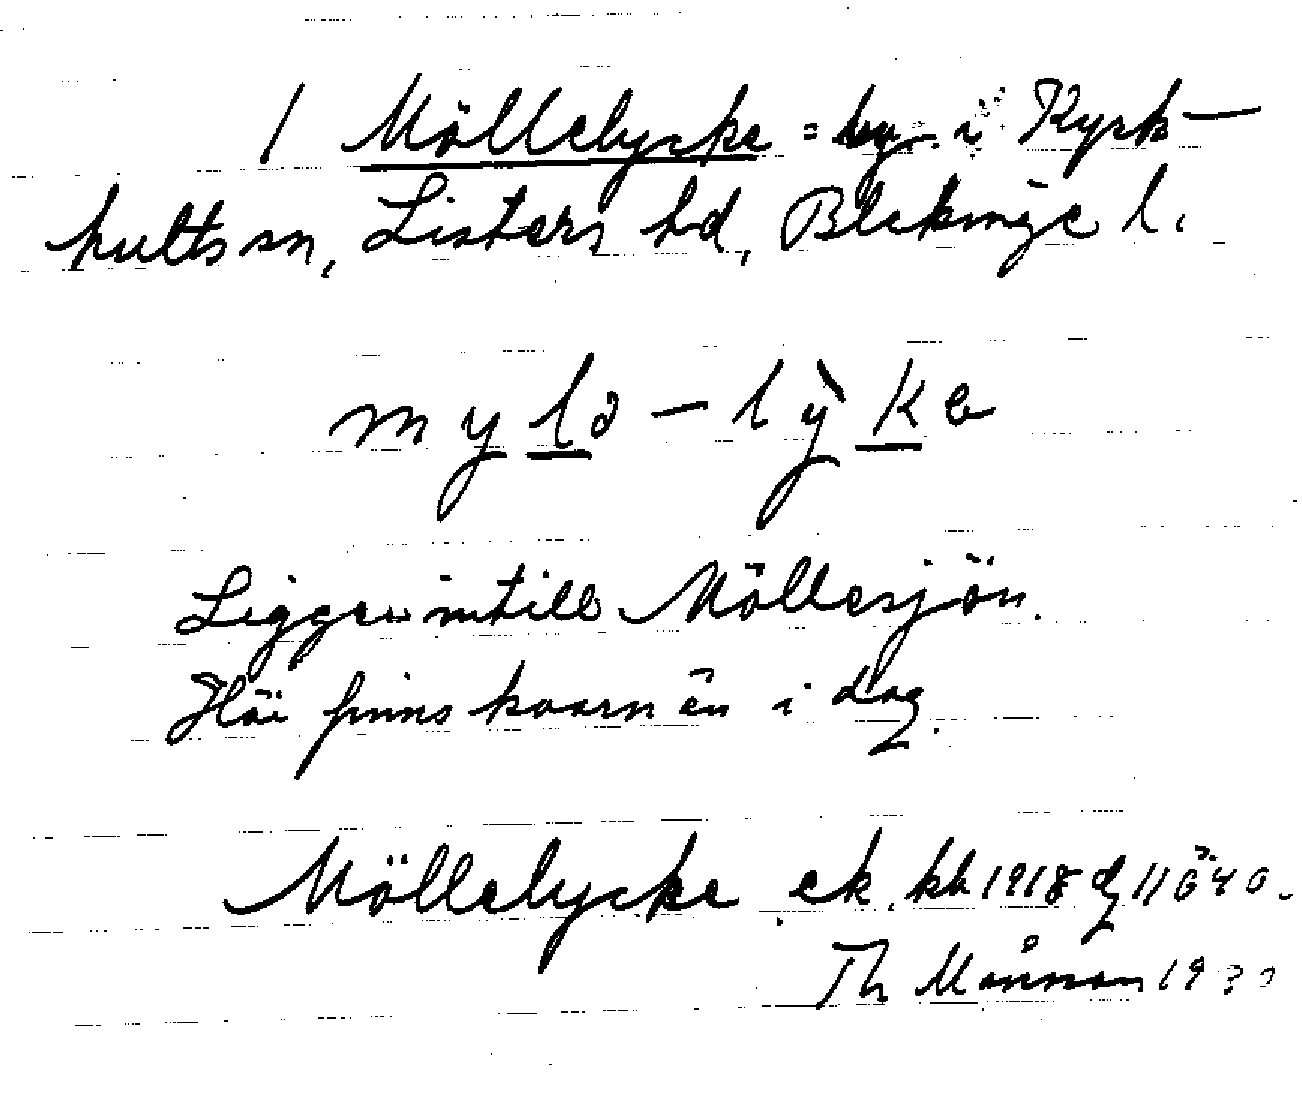 1 Möllelycke = by i Kyrk-
hults sn, Listers hd, Blekinge l.
mylə - lỳka
Ligger intill Möllesjön.
Här finns kvarn än i dag.
Möllelycke ek. kb 1918
Th Månsson 1930